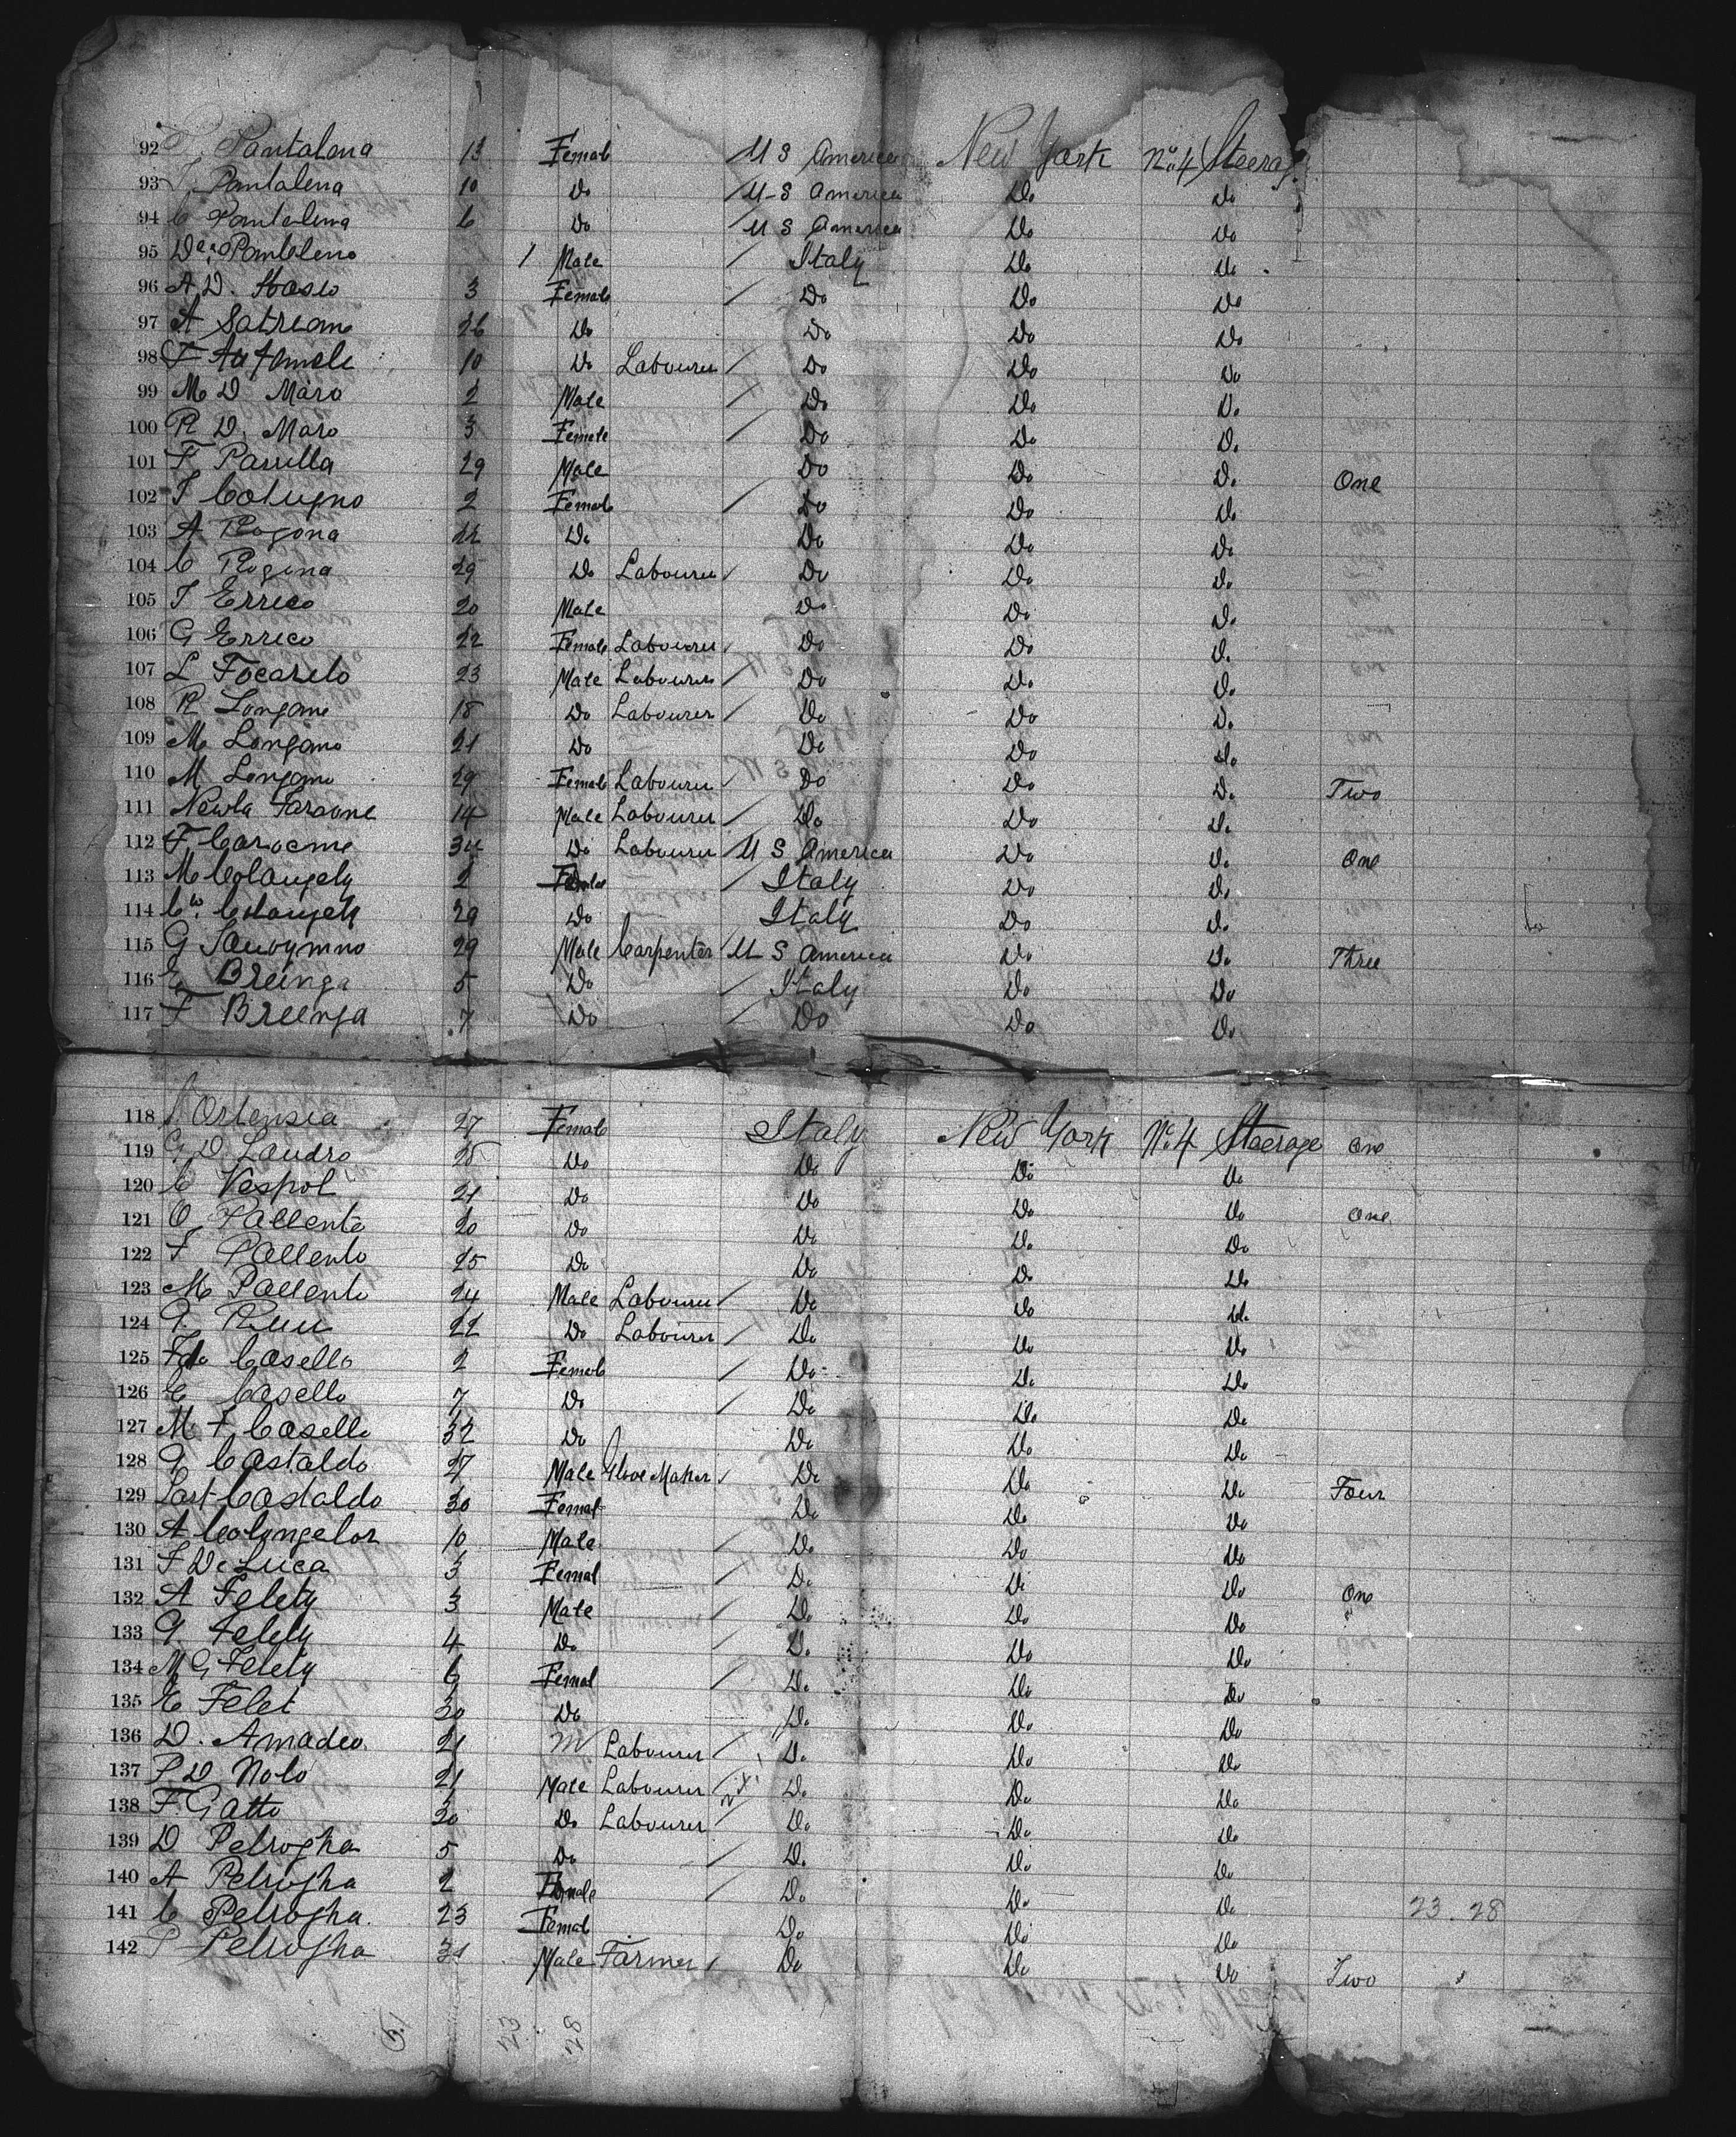 92 P. Pantalena 13 Female U S America New York No 4 Steerage
93 Pantalena 10 Do U-S America Do Do
94 C Pantalena 6 Do U S America Do Do
95 1 Male / Italy Do Do
96 A D. Stasio 3 Female / Do Do Do
97 A Satriano 26 Do Do Do Do
98 F 10 Do Labourer / Do Do Do
99 M D Maro 2 Male / Do Do Do
100 R D. Maro 3 Female / Do Do Do
101 F Parrilla 29 Male Do Do Do One
102 F Cotugno 2 Female / Do Do Do
103 A Rogona 22 Do Do Do Do
104 C Rogina 29 Do Labourer / Do Do Do
105 F Errico 20 Male Do Do Do
106 G Errico 22 Female Labourer / Do Do Do
107 L Focarelo 23 Male Labourer / Do Do Do
108 R Longano 18 Do Labourer / Do Do Do
109 M Longano 21 Do Do Do Do
110 M Longano 29 Female Labourer / Do Do Do Two
111 Faraone 14 Male Labourer / Do Do Do
112 F 34 Do Labourer U S America Do Do One
113 M Colangely 2 Female / Italy Do Do
114 Colangely 29 Do Italy Do Do
115 G 29 Male Carpenter U S America Do Do Three
116 Breinga 5 Do / Italy Do Do
117 F Breenga 7 Do / Do Do Do
118 Ortensia 27 Female Italy New York No 4 Steerage One
119 G D. Landro 25 Do Do Do Do
120 C Vespol 21 Do Do Do Do One
121 O Pallente 20 Do Do Do Do
122 F Pallento 25 Do Do Do Do
123 M Pallento 24 Male Labourer / Do Do Do
124 G. 22 Do Labourer / Do Do Do
125 Casello 2 Female / Do Do Do
126 C Casello 7 Do / Do Do Do
127 M F Casello 32 Do Do Do Do
128 G Castaldo 27 Male Glove Maker / Do Do Do Four
129 Castaldo 30 Female Do Do Do
130 A Colangelor 10 Male / Do Do Do
131 F De Luca 3 Female / Do Do Do One
132 A Felety 3 Male / Do Do Do
133 G Felety 4 Do / Do Do Do
134 M G Felety 6 Female / Do Do Do
135 E Felet 30 Do Do Do Do
136 D. Amadeo 21 M Labourer / Do Do Do
137 P D Nolo 21 Male Labourer Do Do Do
138 F. Gatto 30 Do Labourer / Do Do Do
139 D Petrogha 5 Do / Do Do Do
140 A Petrogha 2 Female / Do Do Do
141 C Petrogha 23 Female Do Do Do 23. 28
142 P Petrogha 31 Male Farmer / Do Do Do Two
51 23 28